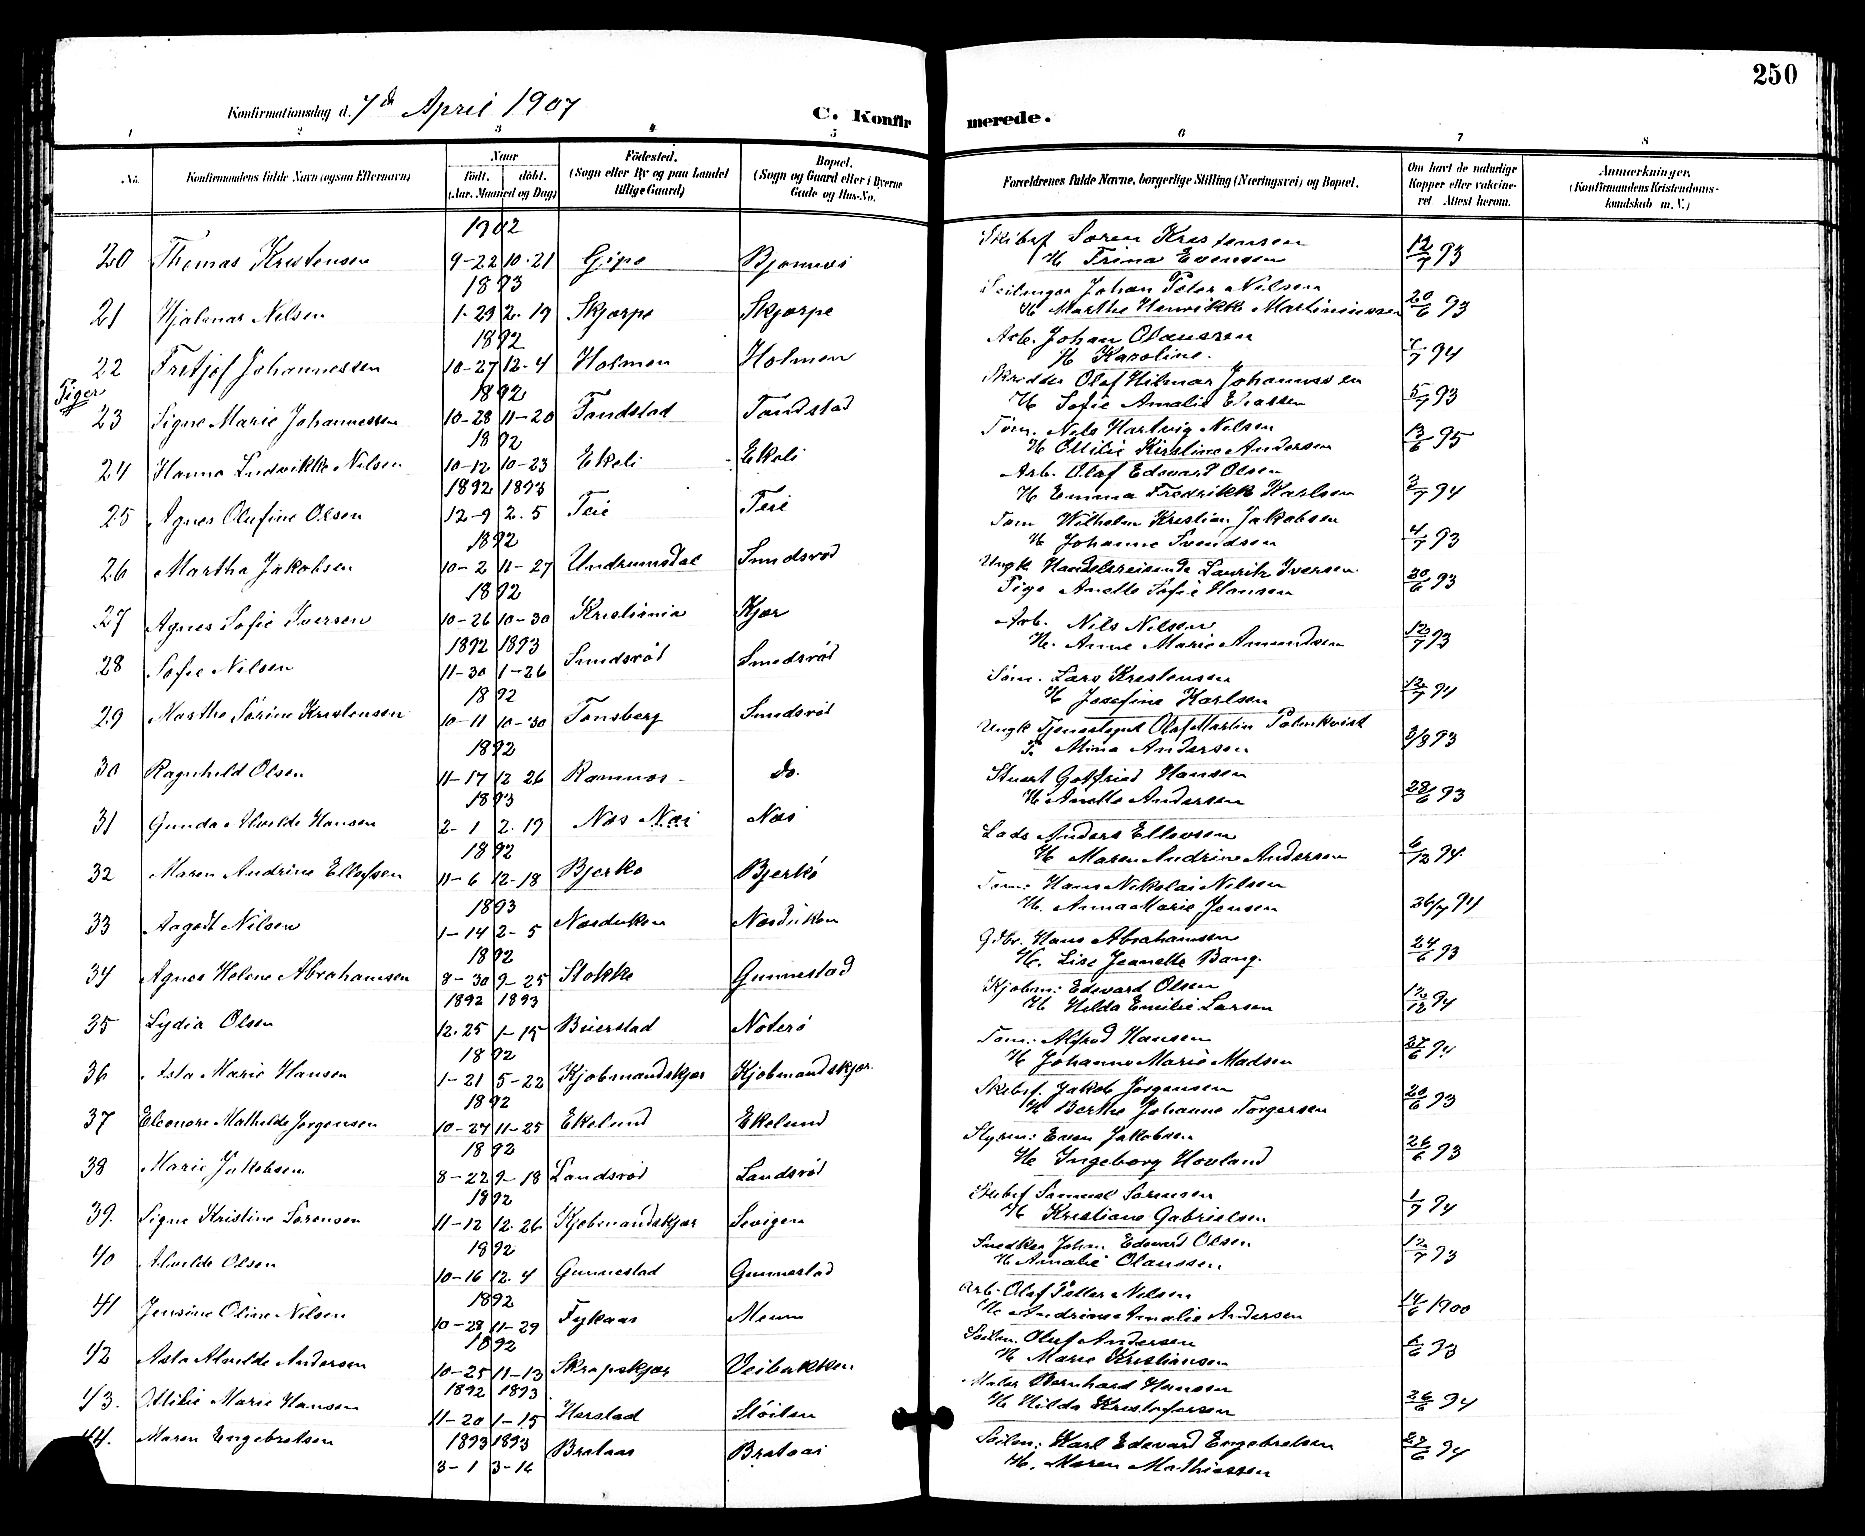 250
Konfirmationsdag d. 7de April 1907
C. Konfirmerede.
1 2 3 4 5 6 7 8
No. Konfirmandens fulde Navn (ogsaa Efternavn) Naar født. døbt. (Aar, Maaned og Dag) Fødested. (Sogn eller By og paa Landet tillige Gaard) Bopæl. (Sogn og Gaard eller i Byerne Gade og Hus-No. Forældrenes fulde Navne, borgerlige Stilling (Næringsvei) og Bopæl. Om havt de naturlige Kopper eller vaccineret Attest herom. Anmærkninger. (Konfirmandens Kristendomskundskab m. V.)
1902
20 Thomas Kristensen 9-22 10-21 Gipø Bjørnevi Skibsf Søren Kristensen H Trina Evensen 12/7 93
1893
21 Hjalmar Nilsen 1-23 2-19 Skjærpe Skjærpe Johan Peter Nilsen H Marthe Henrikke Martiniussen 20/6 93
1892
22 Fretjof Johannessen 10-27 12-4 Holmen Holmen Arb. Johan Olaussen H Karoline. 7/7 94
Piger
1892
23 Signe Marie Johannessen 10-28 11-20 Tandstad Tandstad Skrædder Olaf Hilmar Johannesen H Sofie Amalie Eliassen 5/7 93
1892
24 Hanna Ludvikke Nilsen 10-12 10-23 Ekeli Ekeli Tøm. Nils Hartvig Nilsen H Ottilie Kirstine Andersen 13/6 95
1892 1893
25 Agnes Olufine Olsen 12-9 2-5 Teie Teie Arb. Olaf Edvard Olsen H Emma Fredrikke Karlsen 3/7 94
1892
26 Martha Jakobsen 10-2 11-27 Undrumsdal Smidsrød Tøm Wilhelm Kristian Jakobsen H Johanne Svendsen 4/7 93
1892
27 Agnes Sofie Iversen 10-26 10-30 Kristiania Kjær Ungk Handelsreisende Lauritz Iversen Pige Anette Sofie Hansen 20/6 93
1892 1893
28 Sofie Nilsen 11-30 1-26 Smidsrød Smidsrød Arb. Nils Nilssen H. Anne Marie Amundsen 12/7 93
1892
29 Marthe Sørine Kristensen 10-11 10-30 Tønsberg Smidsrød Tøm. Lars Kristensen H Josefine Karlsen 12/7 94
1892
30 Ragnhild Olsen 11-17 12 26 Ramnæs do. Ungk Tjenestegut Olaf Martin Palmkvist P. Mina Andersen 3/8 93
1893
31 Gunda Alvilde Hansen 2-1 2-19 Næs Nøi Næs Stuert Gotfried Hansen H Anette Andersen 28/6 93
1892
32 Maren Andrine Ellefsen 11-6 12-18 Bjerkø Bjerkø Lods Anders Ellevsen H Maren Andrine Andersen 6/12 94.
1893
33 Aagodt Nilsen 1-14 2-5 Næsbuken Tøm: Hans Nikolai Nilsen H. Anna Marie Jensen 26/7 94
1892
34 Agnes Helene Abrahamsen 8-30 9-25 Stokke Gunnestad Gdbr. Hans Abrahamsen H. Lise Jeanette Bang. 24/6 93
1892 1893
35 Lydia Olsen 12.25 1-15 Buerstad Nøterø Kjøbm: Edvard Olsen H Hilda Emilie Larsen 12/12 94
1892
36 Asta Marie Hansen 1-21 5-22 Kjøbmandskjær Kjøbmandskjær. Tøm: Alfred Hansen H Johanne Marie Madsen 27/6 94
1892
37 Eleonore Mathilde Jørgensen 10-27 11-25 Ekelund Ekelund Skibsf. Jakob Jørgensen H Berthe Johanne Torgersen 20/6 93
1892
38 Marie Jakobsen 8-22 9-18 Landsrød Landsrød Styrm: Even Jakobsen H Ingeborg Hovland 26/6 93
1892
39. Signe Kristine Sørensen 11-12 12.26 Kjøbmandskjær Sevigen Skibsf Samuel Sørensen H Kristiane Gabrielsen 1/7 94
1892
40 Alvilde Olsen 10-16 12.4 Gunnestad Gunnestad Snedker John Edvard Olsen H Amalie Olaussen 12/7 93
1892
41 Jensine Oline Nilsen 10-28 11-29 Tykaas Meum Arb. Olaf Petter Nilsen H. Andrine Amalie Andersen 14/6 1900
1892
42 Asta Alvilde Andersen 10-25 11-13 Skrapskjær Veibakken Seilm. Oluf Andersen H Marie Kristiansen 6/6 93
1892 1893
43. Ottilie Marie Hansen 11-20 1-15 Herstad Støiten Maler Bernhard Hanssen H Hilda Kristofersen 26/6 94
1893 1893
44. Maren Engebretsen 3-1 3-16 Brataas Brataas Seilm: Karl Edvard Engebretsen H. Maren Mathiassen 27/6 94